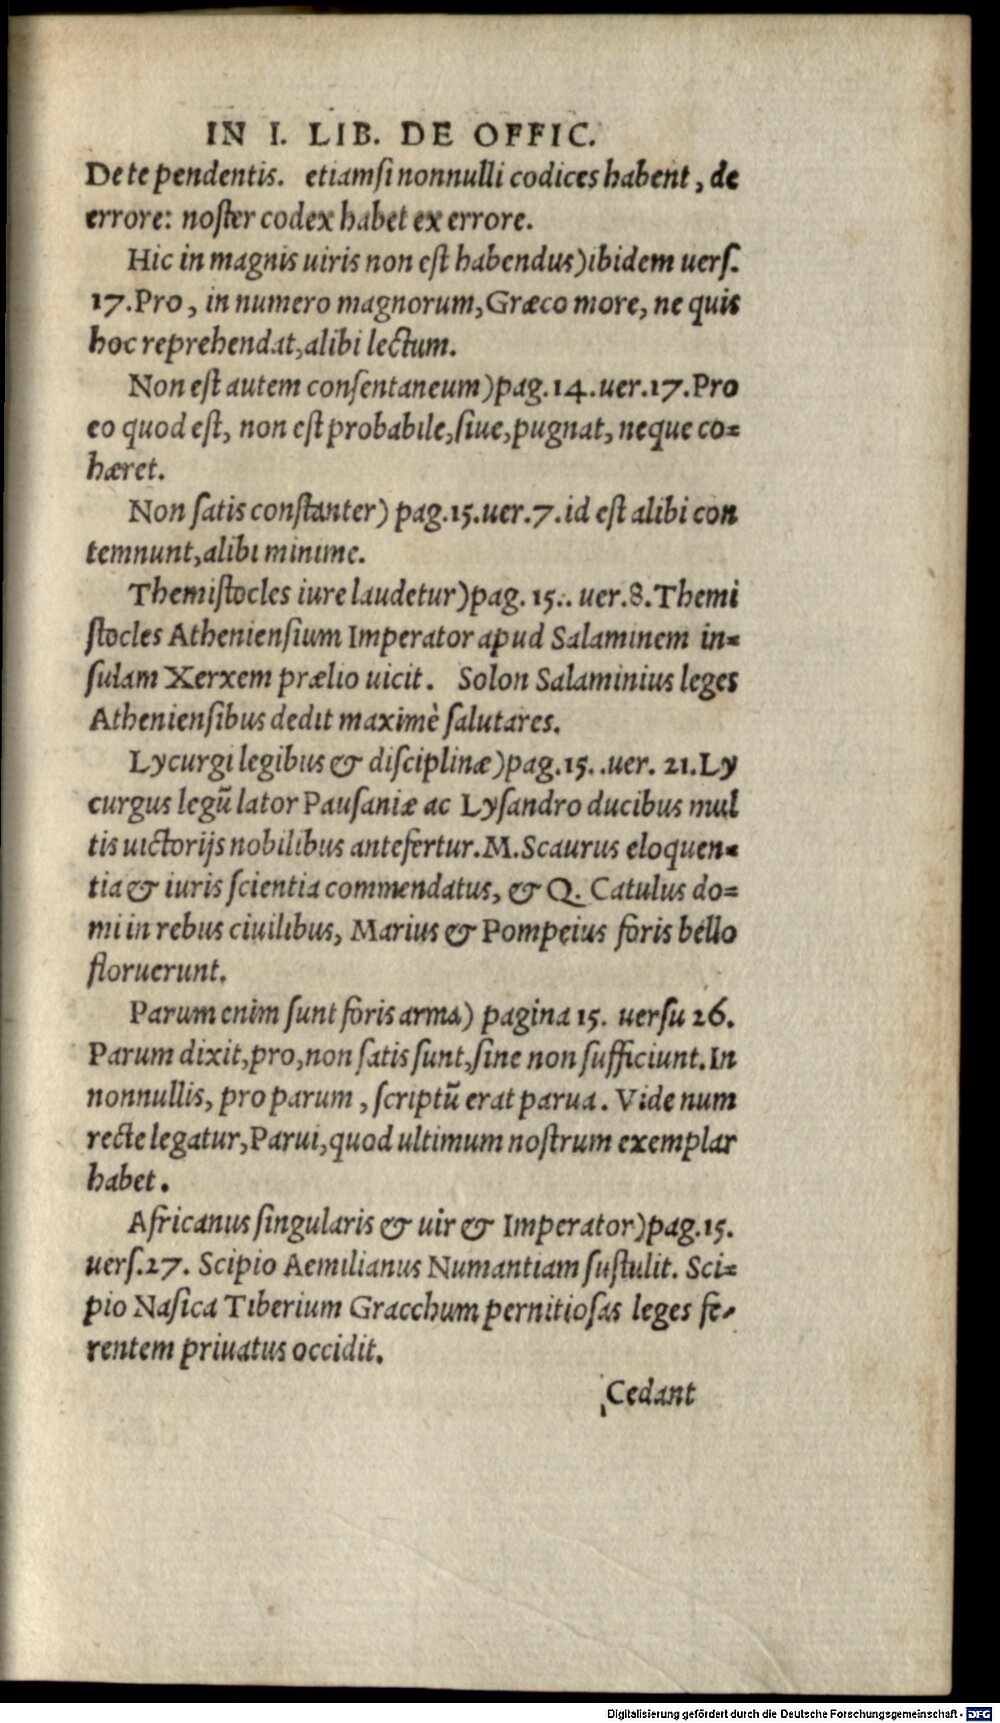 IN I. LIB. DE OFFIC.
De te pendentis. etiamſi nonnulli codices habent, de
errore: noſter codex habet ex errore.
Hic in magnis uiris non eſt habendus) ibidem uerſ.
17. Pro, in numero magnorum, Græco more, ne quis
hoc reprehendat, alibi lectum.
Non eſt autem conſentaneum) pag. 14. uer. 17. Pro
eo quod eſt, non eſt probabile, ſiue, pugnat, neque co=
hæret.
Non ſatis conſtanter) pag. 15. uer. 7. id eſt alibi con
temnunt, alibi minime.
Themiſtocles iure laudetur) pag. 15.. uer. 8. Themi
ſtocles Athenienſium Imperator apud Salaminem in=
ſulam Xerxem prælio uicit. Solon Salaminius leges
Athenienſibus dedit maximè ſalutares.
Lycurgi legibus & diſciplinæ) pag. 15. .uer. 21. Ly
curgus legū lator Pauſaniæ ac Lyſandro ducibus mul
tis uictorijs nobilibus antefertur. M. Scaurus eloquen=
tia & iuris ſcientia commendatus, & Q. Catulus do=
mi in rebus ciuilibus, Marius & Pompeius foris bello
floruerunt.
Parum enim ſunt foris arma) pagina 15. uerſu 26.
Parum dixit, pro, non ſatis ſunt, ſine non ſufficiunt. In
nonnullis, pro parum, ſcriptū erat parua. Vide num
recte legatur, Parui, quod ultimum noſtrum exemplar
habet.
Africanus ſingularis & uir & Imperator) pag. 15.
uerſ. 27. Scipio Aemilianus Numantiam ſuſtulit. Sci=
pio Naſica Tiberium Gracchum pernitioſas leges fe=
rentem priuatus occidit.
Cedant
Digitalisierung gefördert durch die Deutsche Forschungsgemeinschaft - DFG